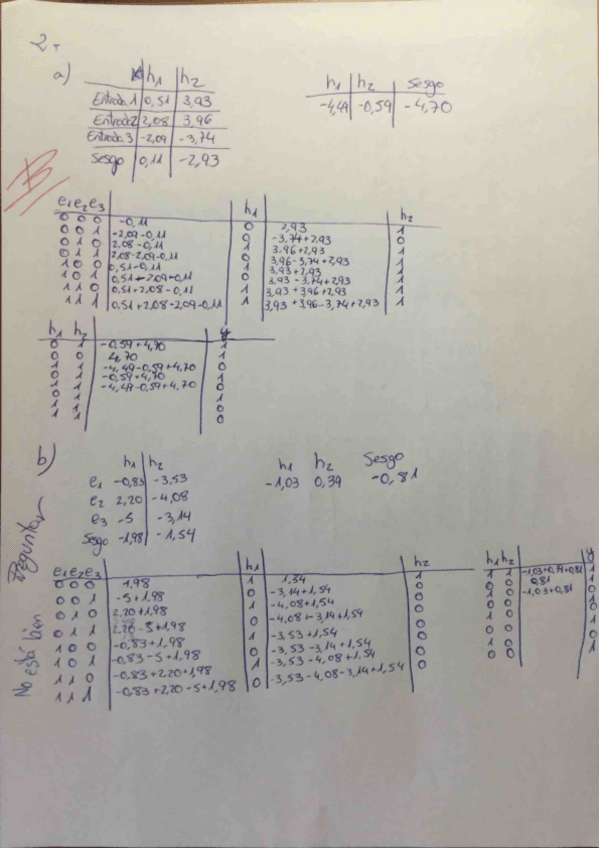 2.
a)
h₁ h₂
Entrada 1 0,51 3,93
Entrada 2 2,08 3,96
Entrada 3 -2,09 -3,74
Sesgo 0,11 -2,93
h₁ h₂ Sesgo
-4,49 -0,59 -4,70
B
e₁ e₂ e₃ h₁ h₂
0 0 0 -0,11 0 2,93 1
0 0 1 -2,09-0,11 0 -3,74+2,93 0
0 1 0 2,08-0,11 1 3,96+2,93 1
0 1 1 2,08-2,09-0,11 0 3,96-3,74+2,93 1
1 0 0 0,51-0,11 1 3,93+2,93 1
1 0 1 0,51-2,09-0,11 0 3,93-3,74+2,93 1
1 1 0 0,51+2,08-0,11 1 3,93+3,96+2,93 1
1 1 1 0,51+2,08-2,09-0,11 1 3,93+3,96-3,74+2,93 1
h₁ h₂ y
-0,59+4,70
4,70
-4,49-0,59+4,70
-0,59+4,70
-4,49-0,59+4,70
b)
h₁ h₂
e₁ -0,83 -3,53
e₂ 2,20 -4,08
e₃ -5 -3,14
Sesgo -1,98 -1,54
h₁ h₂ Sesgo
-1,03 0,39 -0,81
No está bien Pregunta
e₁ e₂ e₃ h₁ h₂
0 0 0 1,98 1 1,54 1
0 0 1 -5+1,98 0 -3,14+1,54 0
0 1 0 2,20+1,98 1 -4,08+1,54 0
0 1 1 2,20-5+1,98 0 -4,08-3,14+1,54 0
1 0 0 -0,83+1,98 1 -3,53+1,54 0
1 0 1 -0,83-5+1,98 0 -3,53-3,14+1,54 0
1 1 0 -0,83+2,20+1,98 1 -3,53-4,08+1,54 0
1 1 1 -0,83+2,20-5+1,98 0 -3,53-4,08-3,14+1,54 0
h₁ h₂ y
1 1 -1,03+0,39+0,81 1
0 0 0,81 1
1 0 -1,03+0,81 0